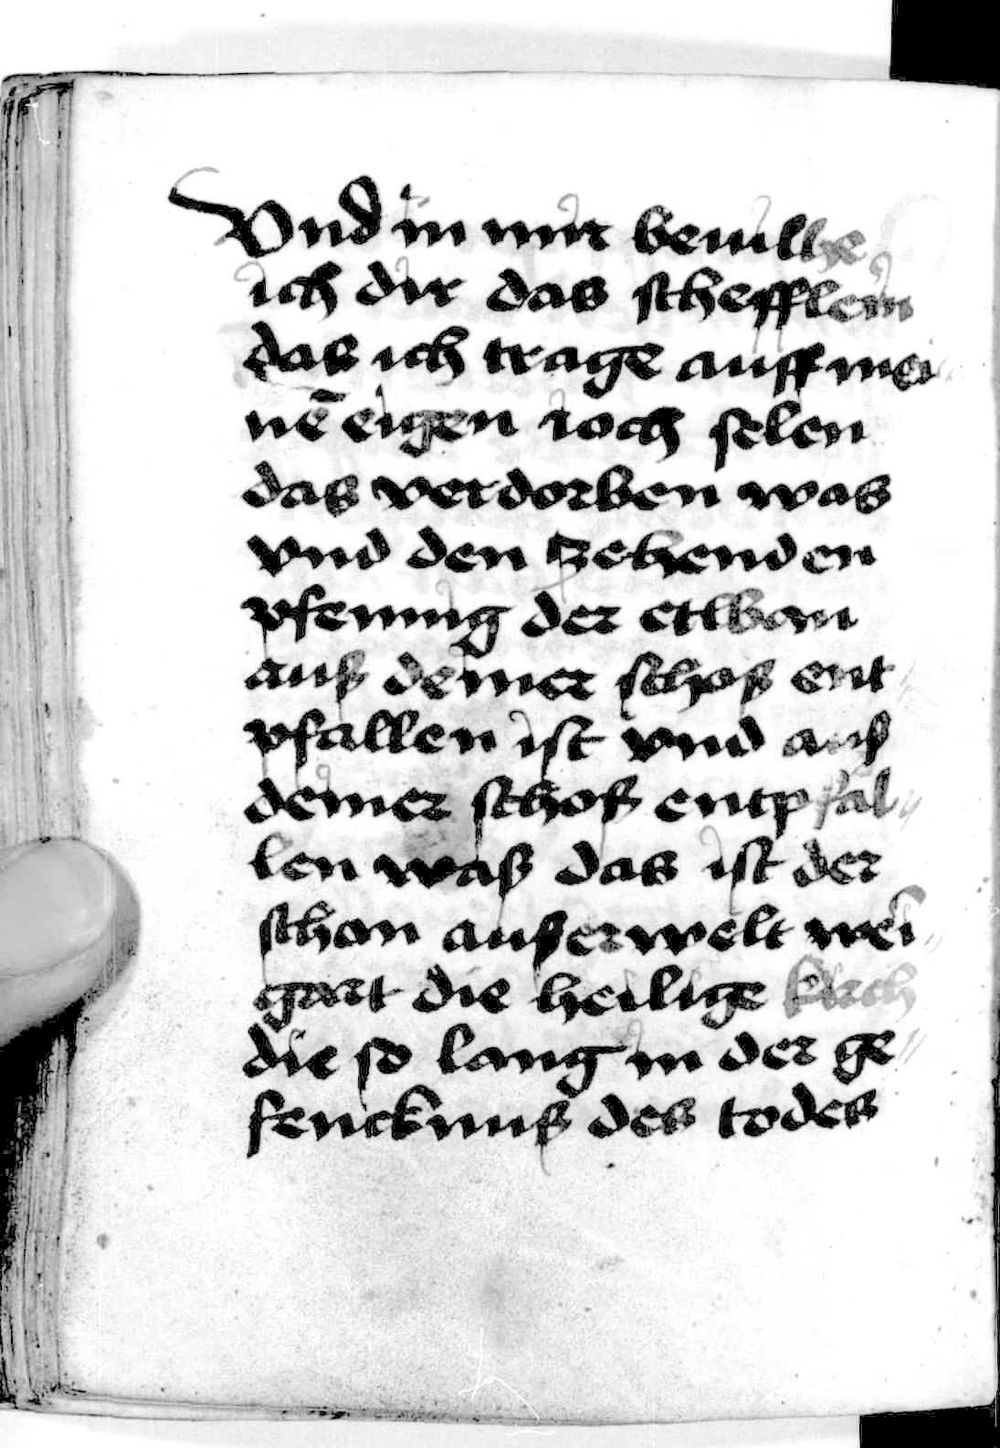 Vnd in mir beuilhe
ich dir das schefflein
das ich trage auff mei
nē eigen ioch selen
das verdorben was
vnd den zehenden
pfennig der etwan
auß deiner schoß ent
pfallen ist vnd auß
deiner schoß entpfal„
len waß das ist der
schon außerwelt wei„
gart die heilige kirch
die so lang in der ge„
fencknuß des todes